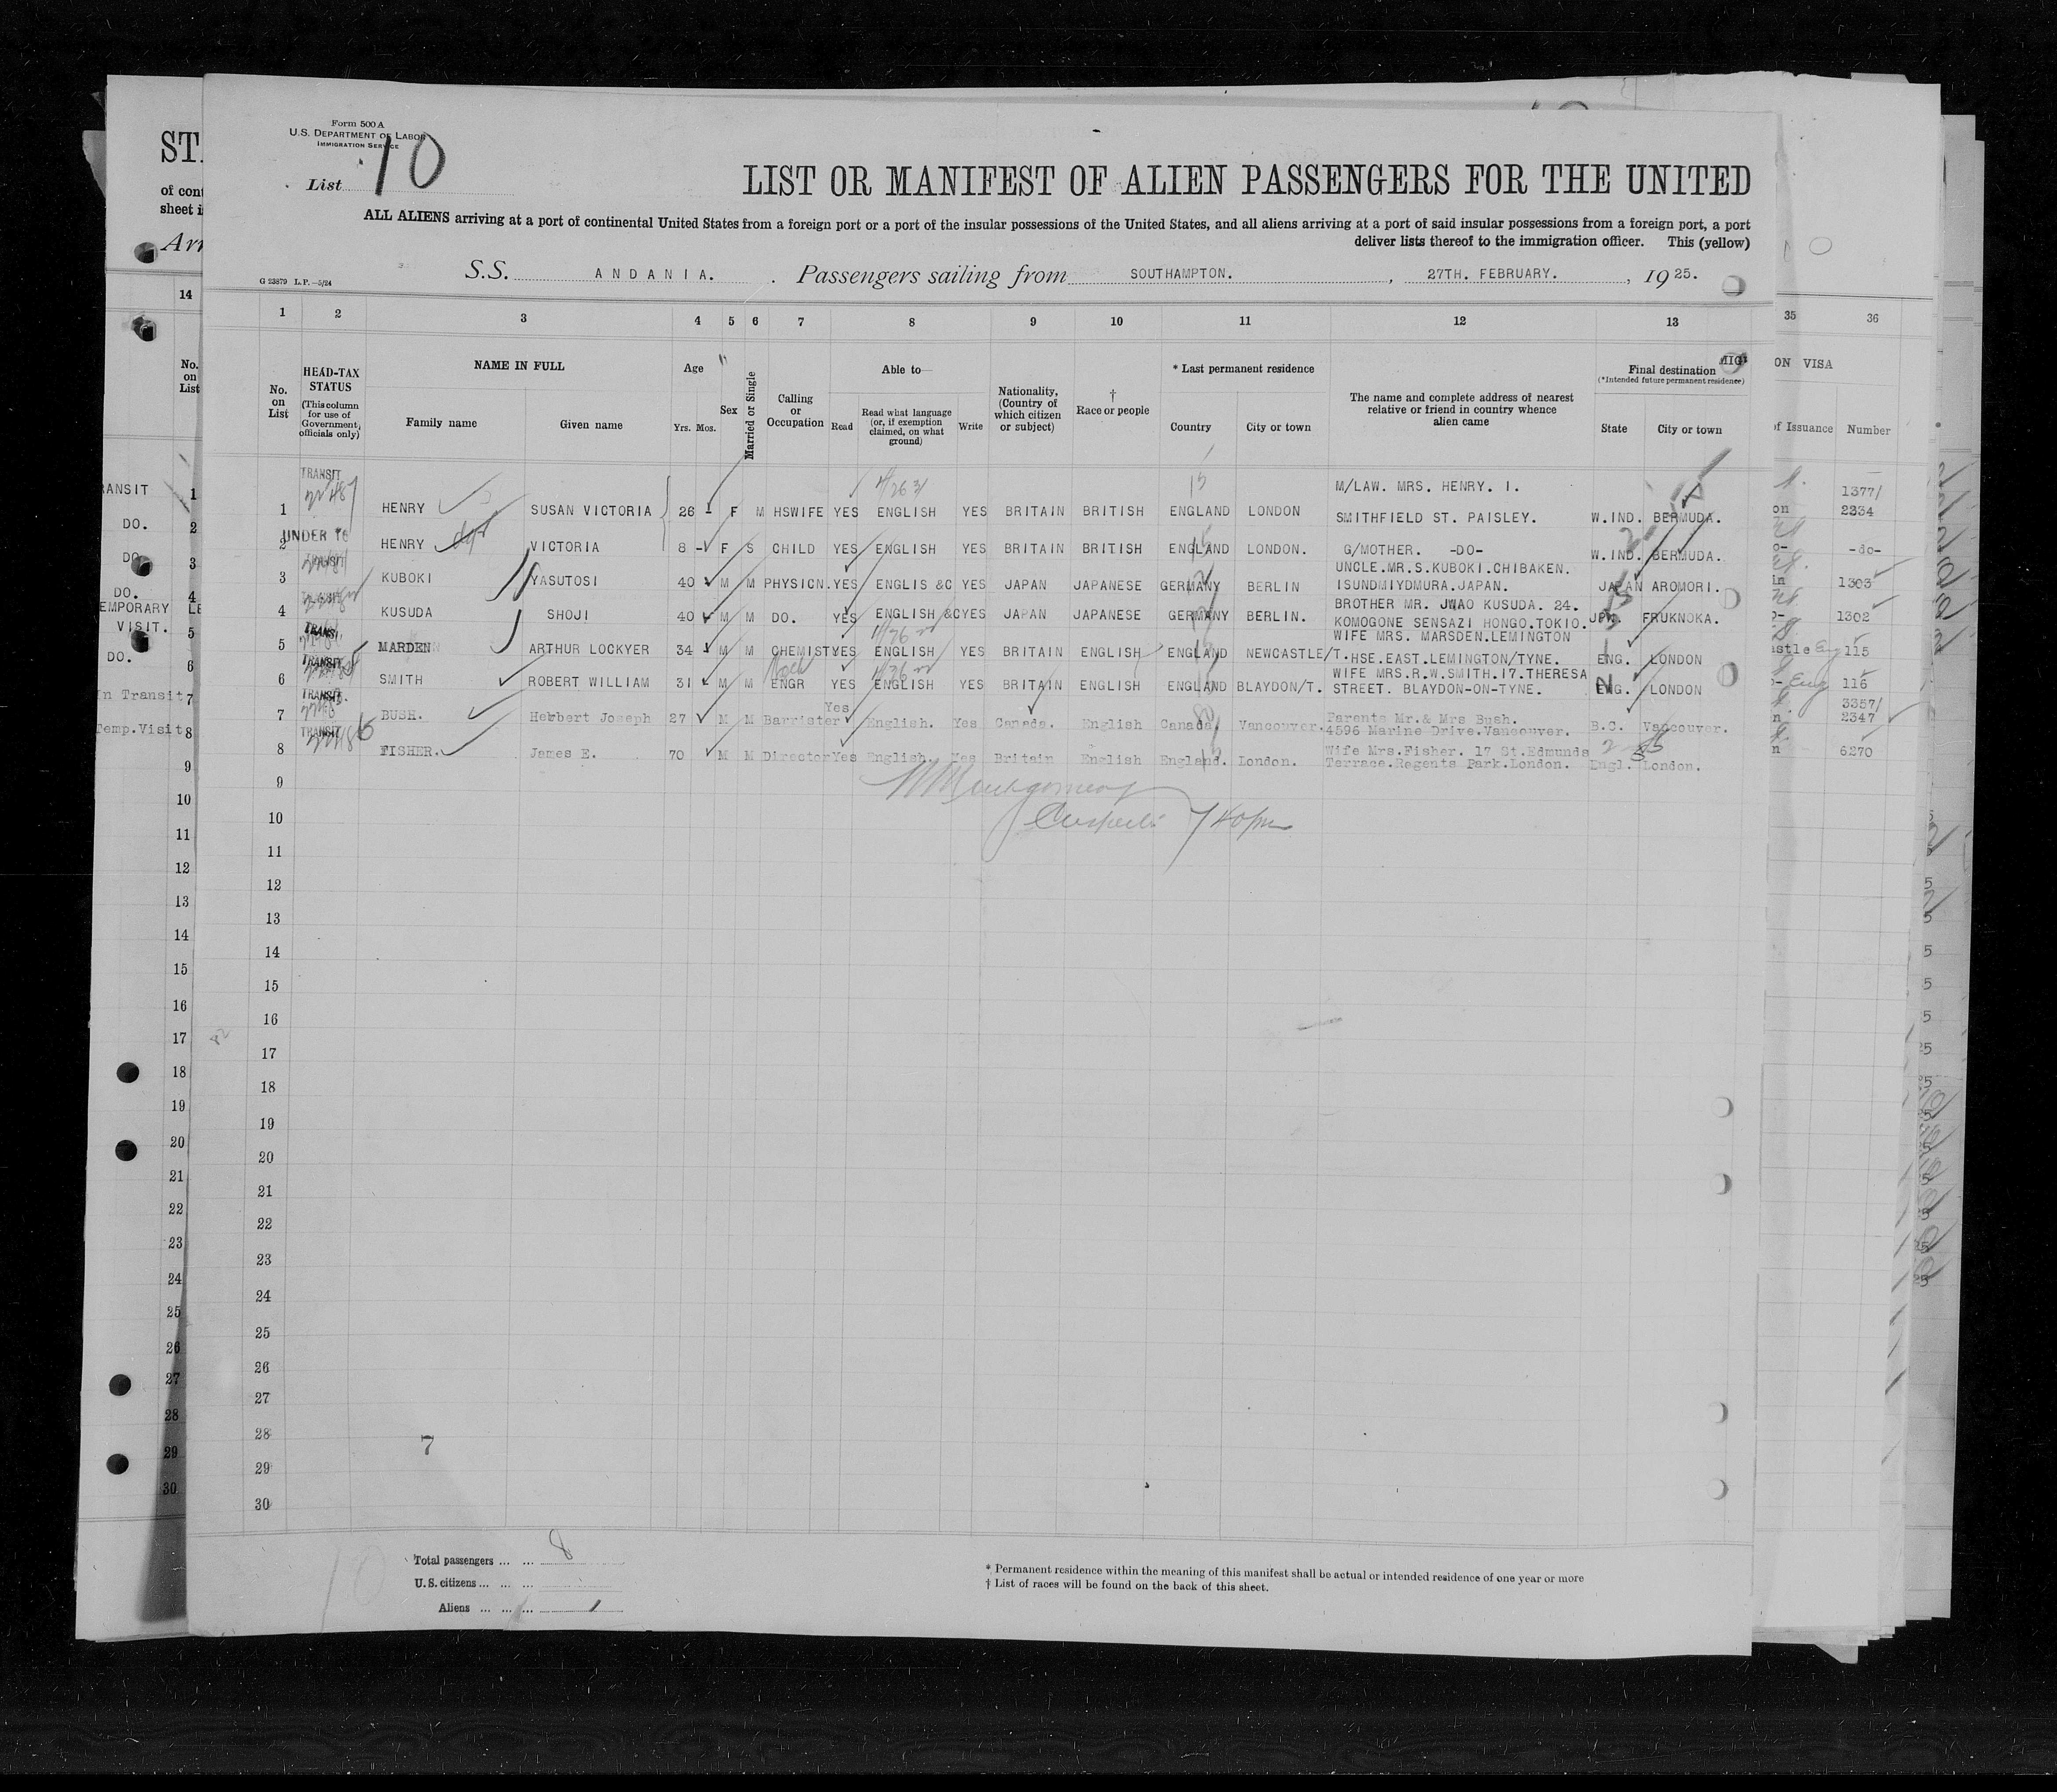 Form 500 A
U.S. DEPARTMENT OF LABOR
IMMIGRATION SERVICE
List 10
LIST OR MANIFEST OF ALIEN PASSENGERS FOR THE UNITED
ALL ALIENS arriving at a port of continental United States from a foreign port or a port of the insular possessions of the United States, and all aliens arriving at a port of said insular possessions from a foreign port, a port
deliver lists thereof to the immigration officer. This (yellow)
S.S. ANDANIA. Passengers sailing from SOUTHAMPTON. , 27TH. FEBRUARY. , 1925.
G 23879 L.P.—5/24
1 2 3 4 5 6 7 8 9 10 11 12 13
No. on List
HEAD-TAX STATUS
(This column for use of Government officials only)
NAME IN FULL
Family name Given name
Age
Yrs. Mos.
Sex
Married or Single
Calling or Occupation
Able to—
Read
Read what language (or, if exemption claimed, on what ground)
Write
Nationality, (Country of which citizen or subject)
† Race or people
* Last permanent residence
Country City or town
The name and complete address of nearest relative or friend in country whence alien came
Final destination
(*Intended future permanent residence)
State City or town
TRANSIT
M/LAW. MRS. HENRY. I.
1 HENRY SUSAN VICTORIA 26 F M HSWIFE YES ENGLISH YES BRITAIN BRITISH ENGLAND LONDON SMITHFIELD ST. PAISLEY. W.IND. BERMUDA.
UNDER 16
2 HENRY VICTORIA 8 - F S CHILD YES ENGLISH YES BRITAIN BRITISH ENGLAND LONDON. G/MOTHER. -DO- W.IND. BERMUDA.
UNCLE.MR.S.KUBOKI.CHIBAKEN.
3 KUBOKI YASUTOSI 40 M M PHYSICN. YES ENGLIS &C YES JAPAN JAPANESE GERMANY BERLIN ISUNDMIYDMURA.JAPAN. JAPAN AROMORI.
BROTHER MR. JWAO KUSUDA. 24.
4 KUSUDA SHOJI 40 M M DO. YES ENGLISH &C YES JAPAN JAPANESE GERMANY BERLIN. KOMOGONE SENSAZI HONGO.TOKIO. JPN. FRUKNOKA.
TRANSIT
WIFE MRS. MARSDEN.LEMINGTON
5 MARDEN ARTHUR LOCKYER 34 M M CHEMIST YES ENGLISH YES BRITAIN ENGLISH ENGLAND NEWCASTLE/T. HSE.EAST.LEMINGTON/TYNE. ENG. LONDON
TRANSIT
WIFE MRS.R.W.SMITH.17.THERESA
6 SMITH ROBERT WILLIAM 31 M M ENGR YES ENGLISH YES BRITAIN ENGLISH ENGLAND BLAYDON/T. STREET. BLAYDON-ON-TYNE. ENG. LONDON
TRANSIT.
Parents Mr.& Mrs Bush.
7 BUSH. Herbert Joseph 27 M M Barrister Yes English. Yes Canada. English Canada Vancouver. 4596 Marine Drive.Vancouver. B.C. Vancouver.
TRANSIT
Wife Mrs.Fisher. 17 St.Edmunds
8 FISHER. James E. 70 M M Director Yes English. Yes Britain English England. London. Terrace.Regents Park.London. Engl. London.
9
10
11
12
13
14
15
16
17
18
19
20
21
22
23
24
25
26
27
28
29
30
7
Total passengers ... ... 8
U.S. citizens ... ... ...
Aliens ... ... ...
* Permanent residence within the meaning of this manifest shall be actual or intended residence of one year or more
† List of races will be found on the back of this sheet.
14
No. on List
DO.
DO.
DO.
VISIT.
DO.
In Transit
Temp.Visit
1
2
3
4
5
6
7
8
9
10
11
12
13
14
15
16
17
18
19
20
21
22
23
24
25
26
27
28
29
30
35 36
ON VISA
of Issuance Number
1377/
2334
-do-
1303
1302
115
116
3357/
2347
6270